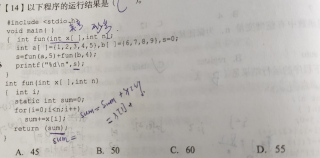 【14】以下程序的运行结果是（
#include <stdio.h>
void main( )
{ int fun(int x[ ],int n);
int a[ ]={1,2,3,4,5},b[ ]={6,7,8,9},s=0;
s=fun(a,5)+fun(b,4);
printf("%d\n",s);
}
int fun(int x[ ],int n)
{ int i;
static int sum=0;
for(i=0;i<n;i++)
sum+=x[i];
return (sum);
sum = sum + x[i]
sum =
A. 45 B. 50 C. 60 D. 55